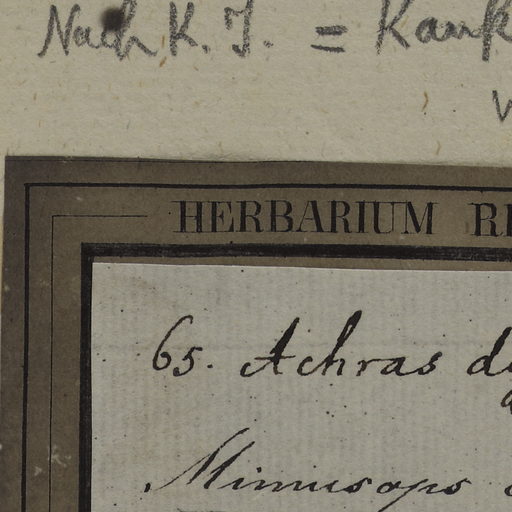 Nach K. J. = Kauk
HERBARIUM
65. Achras
Mimusops